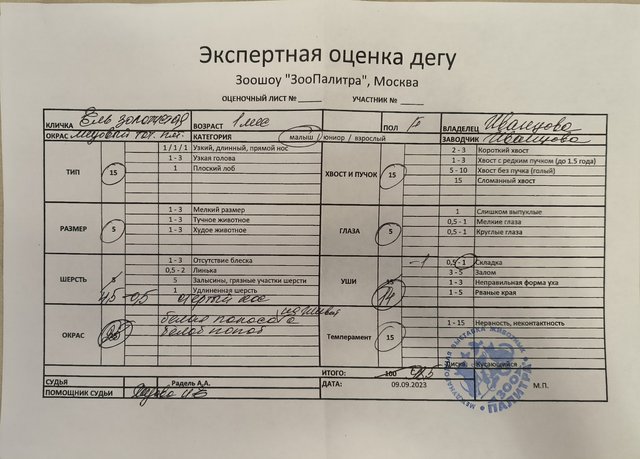 Экспертная оценка дегу
Зоошоу "ЗооПалитра", Москва
ОЦЕНОЧНЫЙ ЛИСТ № _____ УЧАСТНИК № ____
КЛИЧКА Ель золотистая ВОЗРАСТ 1 мес ПОЛ ВЛАДЕЛЕЦ Иванцова
ОКРАС КАТЕГОРИЯ малыш / юниор / взрослый ЗАВОДЧИК Иванцова
ТИП 15 ХВОСТ И ПУЧОК 15
1/1/1 Узкий, длинный, прямой нос 2 - 3 Короткий хвост
1 - 3 Узкая голова 1 - 3 Хвост с редким пучком (до 1.5 года)
1 Плоский лоб 5 - 10 Хвост без пучка (голый)
15 Сломанный хвост
РАЗМЕР 5 ГЛАЗА 5
1 - 3 Мелкий размер 1 Слишком выпуклые
1 - 3 Тучное животное 0,5 - 1 Мелкие глаза
1 - 3 Худое животное 0,5 - 1 Круглые глаза
ШЕРСТЬ 5 УШИ 15
1 - 3 Отсутствие блеска -1 0,5 - 1 Складка
0,5 - 2 Линька 3 - 5 Залом
5 Залысины, грязные участки шерсти 1 - 3 Неправильная форма уха
1 Удлиненная шерсть 14 1 - 5 Рваные края
4,5 -0,5
белая полоса на животе
ОКРАС 25 Темперамент 15 1 - 15 Нервность, неконтактность
Дискв. Кусающийся
ИТОГО: 100
СУДЬЯ Радель А.А. ДАТА: 09.09.2023 М.П.
ПОМОЩНИК СУДЬИ
МЕЖДУНАРОДНАЯ ВЫСТАВКА ЖИВОТНЫХ
ЗОО
ПАЛИТРА